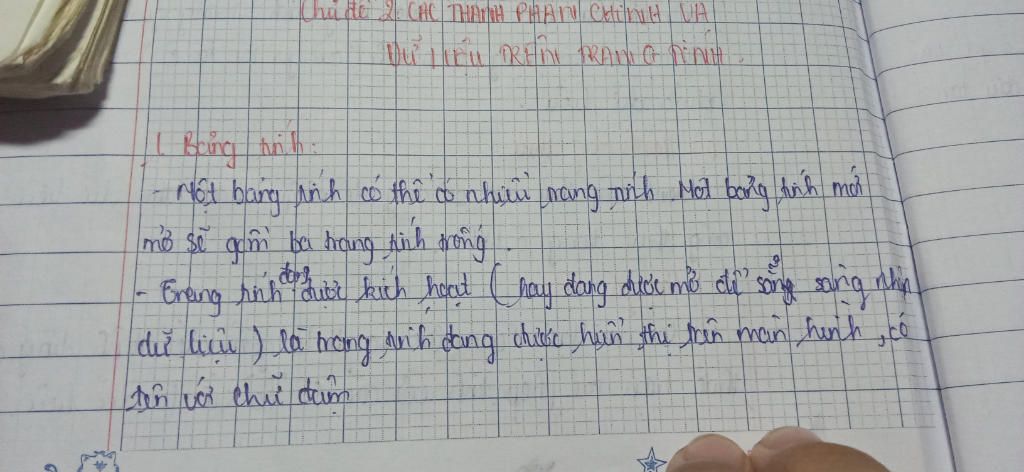 Chủ đề 2: CÁC THÀNH PHẦN CHÍNH VÀ
DỮ LIỆU TRÊN TRANG TÍNH.
1 Bảng tính:
- Một bảng tính có thể có nhiều trang tính. Một bảng tính mới
mở sẽ gồm ba trang tính trống.
- Trang tính đang được kích hoạt (hay đang được mở để sẵng sàng nhận
dữ liệu) là trang tính đang được hiển thị trên màn hình, có
tên với chữ đậm